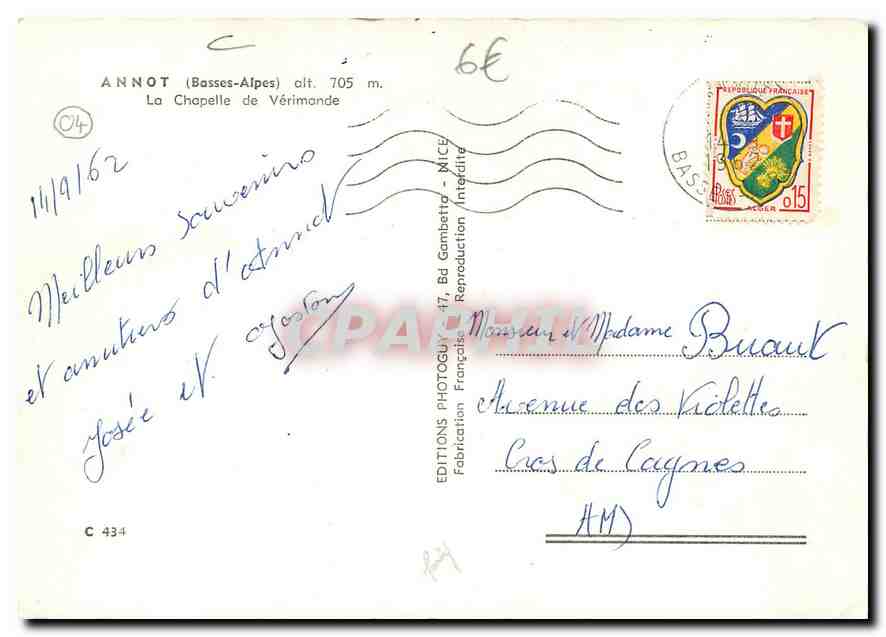 C
6€
ANNOT (Basses-Alpes) alt. 705 m.
La Chapelle de Vérimande
04
14/9/62
Meilleurs Souvenirs
et amitiers d'Annot
Josée et Gaston
C 434
EDITIONS PHOTOGUY - 47, Bd Gambetta - NICE
Fabrication Française - Reproduction Interdite
CPAPHIL
REPUBLIQUE FRANÇAISE
POSTES
ALGER
0,15
BASS
Monsieur et Madame
Avenue des Violettes
Cros de Cagnes
AM)